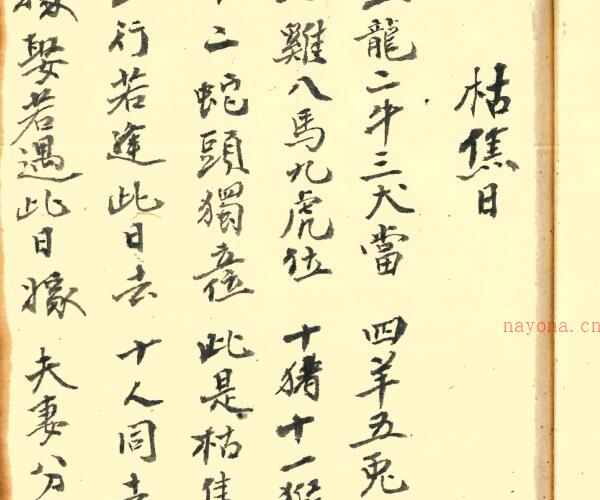 枯焦日
龍二牛三犬當 四羊五兎
雞八馬九虎位 十猪十一猴
二蛇頭獨立位 此是枯焦
行若逢此日去 十人同去
嫁娶若遇此日嫁 夫妻分
nayona.cn